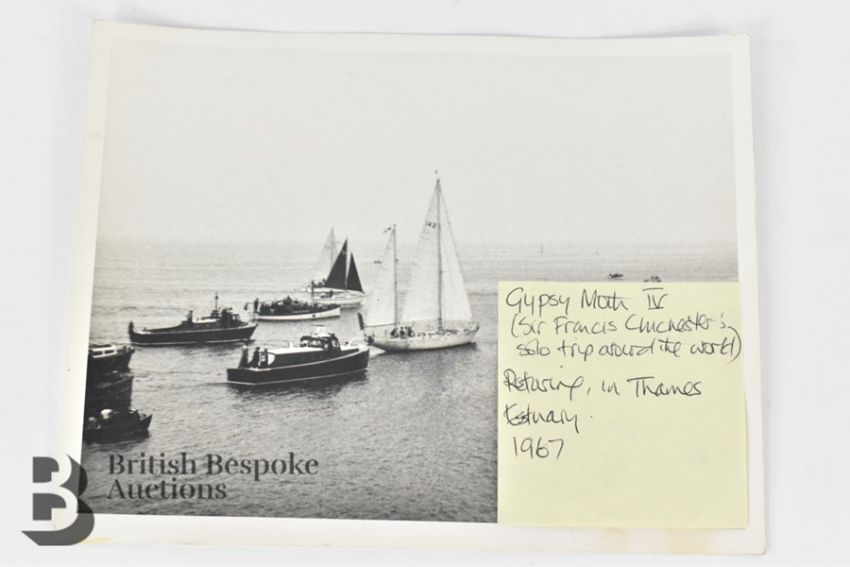 142
Gypsy Moth IV
(Sir Francis Chichester's
solo trip around the world)
Returing, in Thames
Estuary.
1967
British Bespoke
Auctions
B